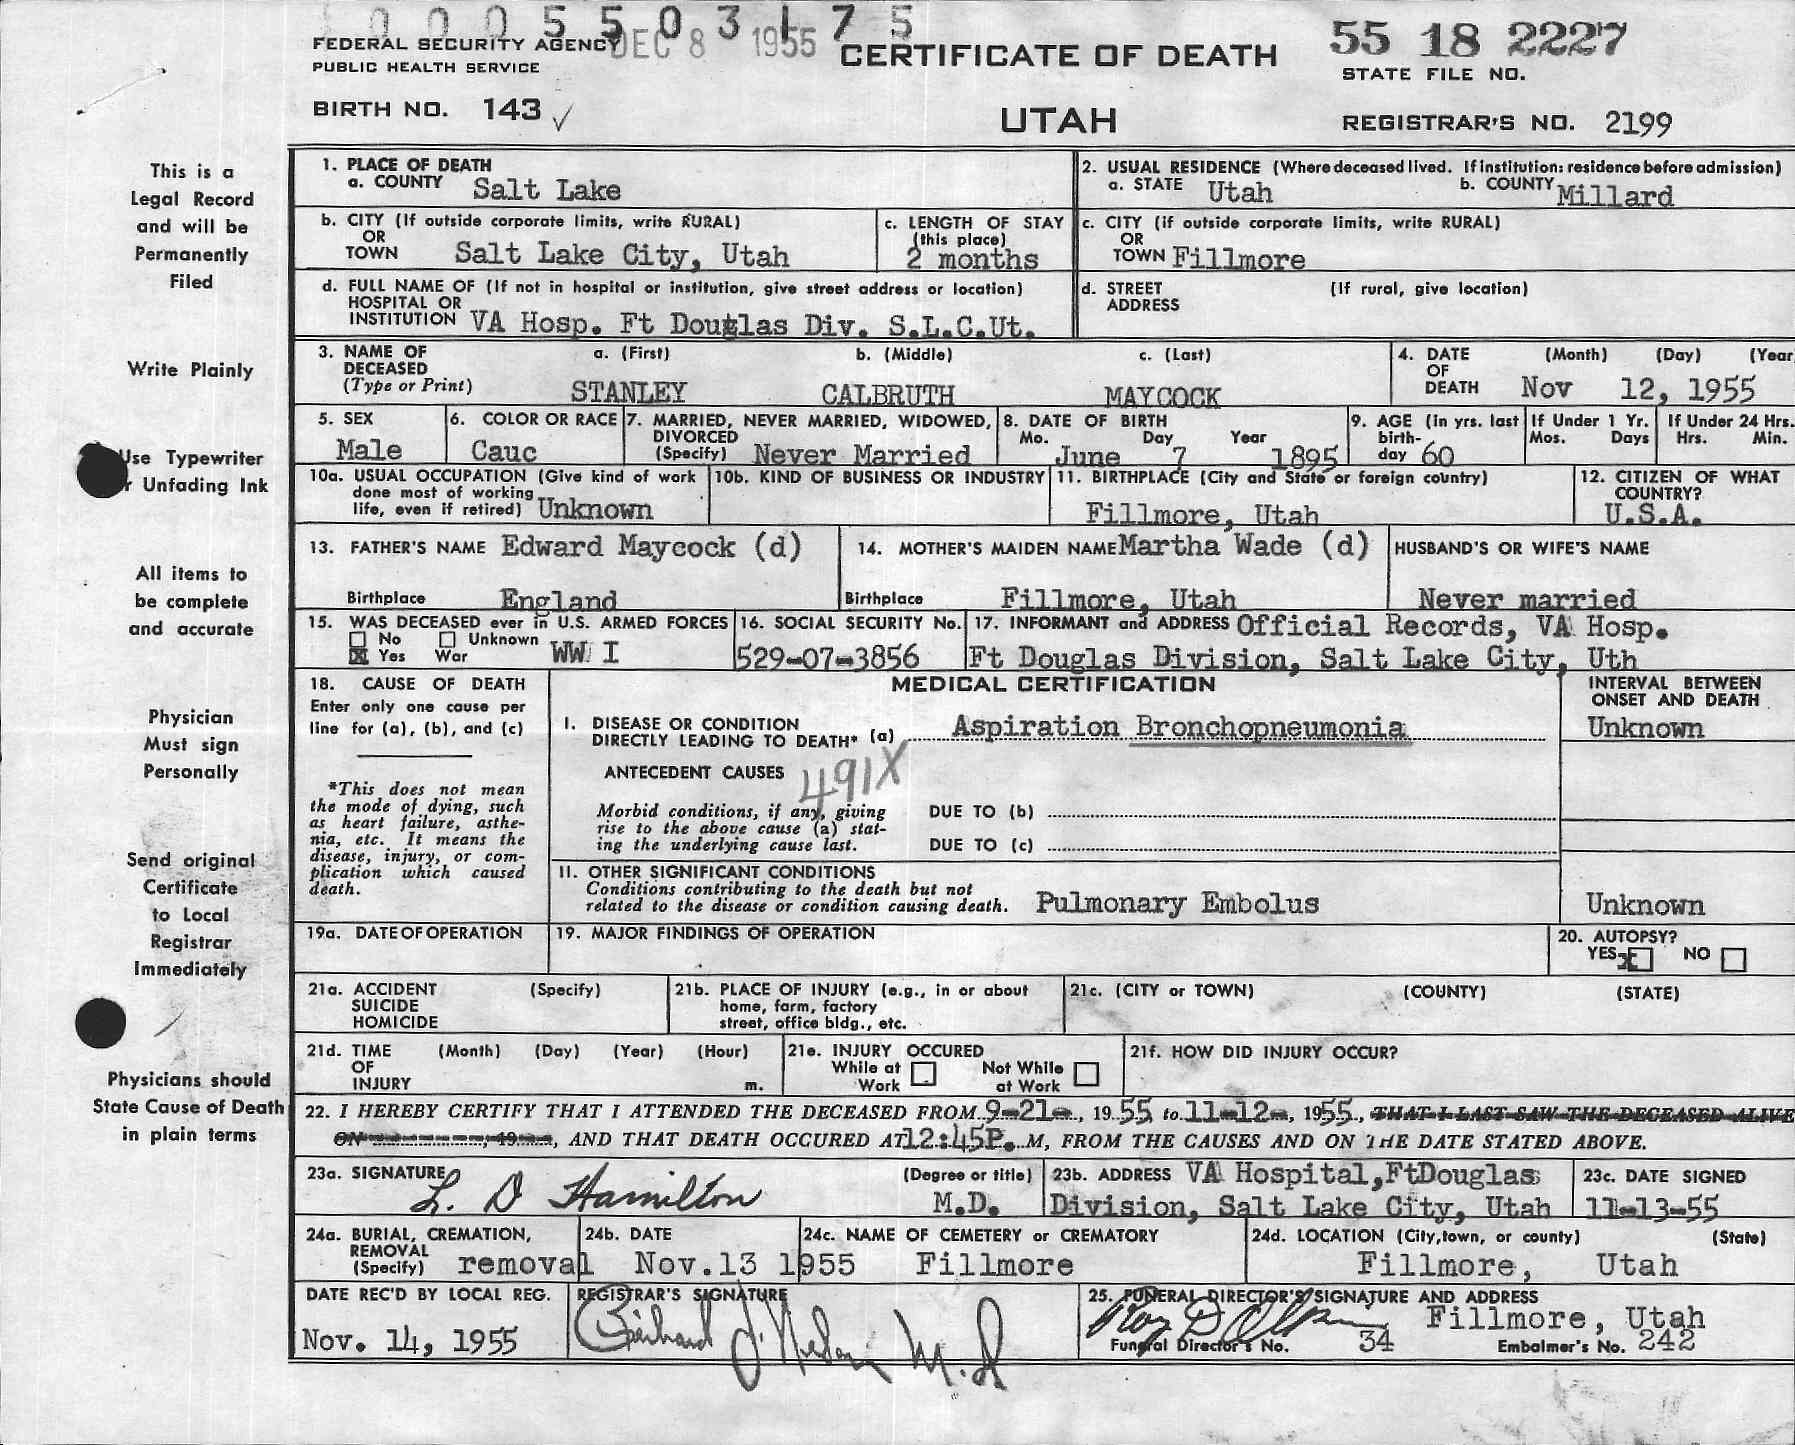 0 0 0 5 5 0 3 1 7 5
FEDERAL SECURITY AGENCY DEC 8 1955 CERTIFICATE OF DEATH 55 18 2227
PUBLIC HEALTH SERVICE STATE FILE NO.
BIRTH NO. 143 ✓ UTAH REGISTRAR'S NO. 2199
This is a
Legal Record
and will be
Permanently
Filed
Write Plainly
Use Typewriter
r Unfading Ink
All items to
be complete
and accurate
Physician
Must sign
Personally
Send original
Certificate
to Local
Registrar
Immediately
Physicians should
State Cause of Death
in plain terms
1. PLACE OF DEATH
a. COUNTY Salt Lake
2. USUAL RESIDENCE (Where deceased lived. If institution: residence before admission)
a. STATE Utah b. COUNTY Millard
b. CITY (If outside corporate limits, write RURAL)
OR
TOWN Salt Lake City, Utah
c. LENGTH OF STAY
(this place)
2 months
c. CITY (if outside corporate limits, write RURAL)
OR
TOWN Fillmore
d. FULL NAME OF (If not in hospital or institution, give street address or location)
HOSPITAL OR
INSTITUTION VA Hosp. Ft Douglas Div. S.L.C.Ut.
d. STREET (If rural, give location)
ADDRESS
3. NAME OF a. (First) b. (Middle) c. (Last)
DECEASED
(Type or Print) STANLEY CALBRUTH MAYCOCK
4. DATE (Month) (Day) (Year
OF
DEATH Nov 12, 1955
5. SEX
Male
6. COLOR OR RACE
Cauc
7. MARRIED, NEVER MARRIED, WIDOWED,
DIVORCED
(Specify) Never Married
8. DATE OF BIRTH
Mo. Day Year
June 7 1895
9. AGE (in yrs. last
birth-
day 60
If Under 1 Yr.
Mos. Days
If Under 24 Hrs.
Hrs. Min.
10a. USUAL OCCUPATION (Give kind of work
done most of working
life, even if retired) Unknown
10b. KIND OF BUSINESS OR INDUSTRY
11. BIRTHPLACE (City and State or foreign country)
Fillmore, Utah
12. CITIZEN OF WHAT
COUNTRY?
U.S.A.
13. FATHER'S NAME Edward Maycock (d)
Birthplace England
14. MOTHER'S MAIDEN NAME Martha Wade (d)
Birthplace Fillmore, Utah
HUSBAND'S OR WIFE'S NAME
Never married
15. WAS DECEASED ever in U.S. ARMED FORCES
No Unknown
Yes War WW I
16. SOCIAL SECURITY No.
529-07-3856
17. INFORMANT and ADDRESS Official Records, VA Hosp.
Ft Douglas Division, Salt Lake City, Uth
18. CAUSE OF DEATH
Enter only one cause per
line for (a), (b), and (c)
*This does not mean
the mode of dying, such
as heart failure, asthe-
nia, etc. It means the
disease, injury, or com-
plication which caused
death.
MEDICAL CERTIFICATION
INTERVAL BETWEEN
ONSET AND DEATH
I. DISEASE OR CONDITION
DIRECTLY LEADING TO DEATH* (a) Aspiration Bronchopneumonia Unknown
ANTECEDENT CAUSES 491X
Morbid conditions, if any, giving
rise to the above cause (a) stat-
ing the underlying cause last.
DUE TO (b)
DUE TO (c)
II. OTHER SIGNIFICANT CONDITIONS
Conditions contributing to the death but not
related to the disease or condition causing death. Pulmonary Embolus Unknown
19a. DATE OF OPERATION
19. MAJOR FINDINGS OF OPERATION
20. AUTOPSY?
YES X NO
21a. ACCIDENT (Specify)
SUICIDE
HOMICIDE
21b. PLACE OF INJURY (e.g., in or about
home, farm, factory
street, office bldg., etc.
21c. (CITY or TOWN) (COUNTY) (STATE)
21d. TIME (Month) (Day) (Year) (Hour)
OF
INJURY m.
21e. INJURY OCCURED
While at Not While
Work at Work
21f. HOW DID INJURY OCCUR?
22. I HEREBY CERTIFY THAT I ATTENDED THE DECEASED FROM 9-21-, 1955 to 11-12-, 1955, THAT I LAST SAW THE DECEASED ALIVE
ON , 19 , AND THAT DEATH OCCURED AT 12:45P. M, FROM THE CAUSES AND ON THE DATE STATED ABOVE.
23a. SIGNATURE (Degree or title)
L. D Hamilton M.D.
23b. ADDRESS VA Hospital,FtDouglas
Division, Salt Lake City, Utah
23c. DATE SIGNED
11-13-55
24a. BURIAL, CREMATION,
REMOVAL
(Specify) removal
24b. DATE
Nov.13 1955
24c. NAME OF CEMETERY or CREMATORY
Fillmore
24d. LOCATION (City,town, or county) (State)
Fillmore, Utah
DATE REC'D BY LOCAL REG.
Nov. 14, 1955
REGISTRAR'S SIGNATURE
M.D
25. FUNERAL DIRECTOR'S SIGNATURE AND ADDRESS
Fillmore, Utah
Funeral Director's No. 34 Embalmer's No. 242